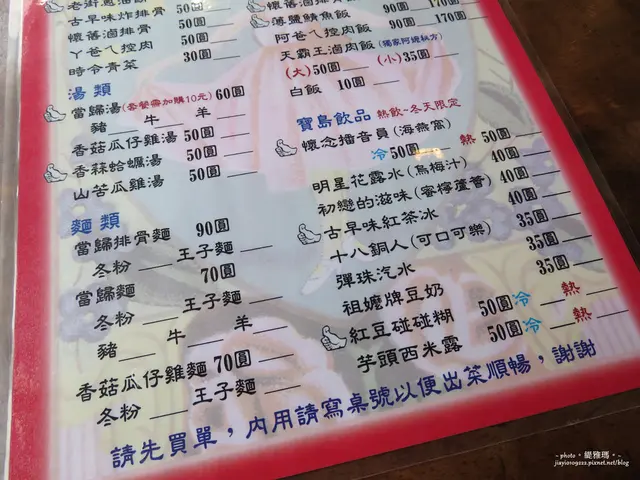 古早味炸排骨 50圓
懷舊滷排骨 50圓
丫爸ㄟ控肉 50圓
時令青菜 30圓
湯類
當歸湯(套餐需加購10元) 60圓
豬 牛 羊
香菇瓜仔雞湯 50圓
香菻蛤蠣湯 50圓
山苦瓜雞湯 50圓
麵類
當歸排骨麵 90圓
冬粉 王子麵
當歸麵 70圓
冬粉 王子麵
豬 牛 羊
香菇瓜仔雞麵 70圓
冬粉 王子麵
薄鹽鯖魚飯 90圓 170圓
阿爸ㄟ控肉飯 90圓 170圓
天霸王滷肉飯(獨家阿嬤秘方)
(大)50圓 (小)35圓
白飯 10圓
寶島飲品 熱飲-冬天限定
懷念播音員(海燕窩)
冷50圓 熱50圓
明星花露水(烏梅汁) 40圓
初戀的滋味(蜜檸蘆薈) 40圓
古早味紅茶冰 40圓
十八銅人(可口可樂) 35圓
彈珠汽水 35圓
祖嬤牌豆奶 35圓
紅豆碰碰糊 50圓冷 熱
芋頭西米露 50圓冷 熱
請先買單，內用請寫桌號以便出菜順暢，謝謝
~ photo。緹雅瑪。~
jiayio19222.pixnet.net/blog